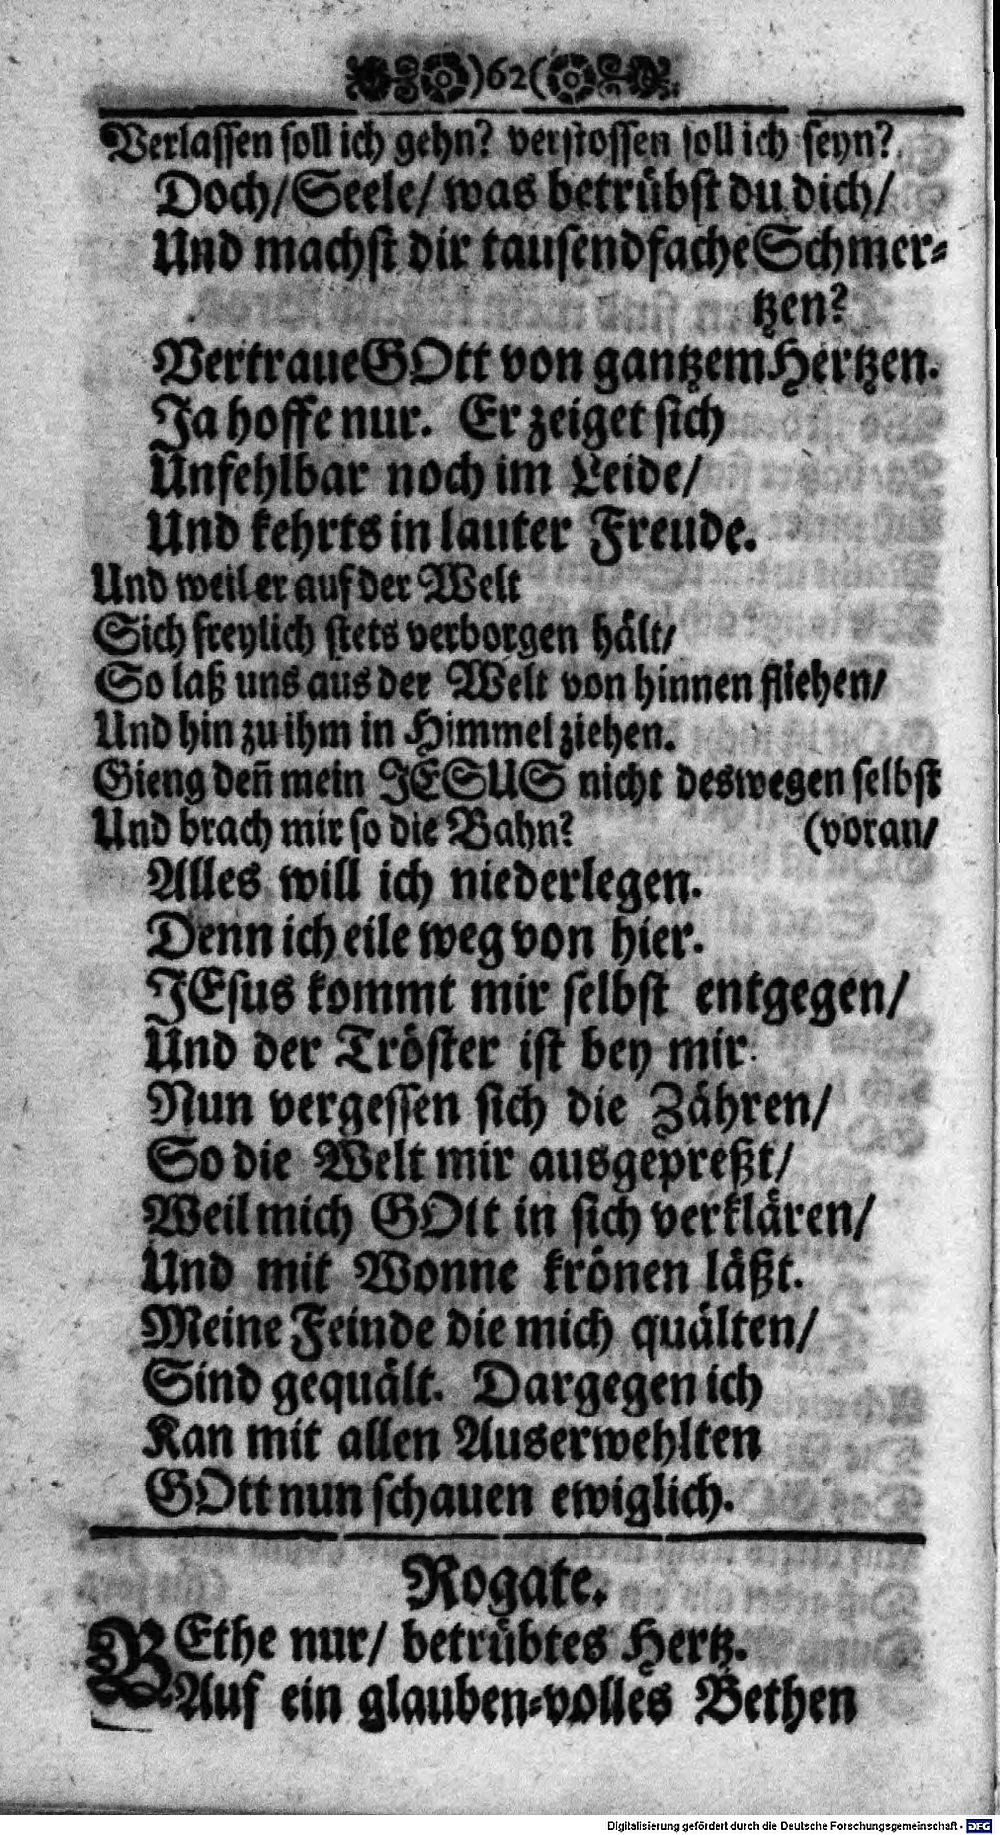 )62(
Verlassen soll ich gehn? verstossen soll ich seyn?
Doch/ Seele/ was betrübst du dich/
Und machst dir tausendfache Schmer-
tzen?
Vertraue GOtt von gantzem Hertzen.
Ja hoffe nur. Er zeiget sich
Unfehlbar noch im Leide/
Und kehrts in lauter Freude.
Und weil er auf der Welt
Sich freylich stets verborgen hält/
So laß uns aus der Welt von hinnen fliehen/
Und hin zu ihm in Himmel ziehen.
Gieng deñ mein JESUS nicht deswegen selbst
Und brach mir so die Bahn? (voran/
Alles will ich niederlegen.
Denn ich eile weg von hier.
JEsus kommt mir selbst entgegen/
Und der Tröster ist bey mir.
Nun vergessen sich die Zähren/
So die Welt mir ausgepreßt/
Weil mich GOtt in sich verklären/
Und mit Wonne krönen läßt.
Meine Feinde die mich quälten/
Sind gequält. Dargegen ich
Kan mit allen Auserwehlten
GOtt nun schauen ewiglich.
Rogate.
BEthe nur/ betrübtes Hertz.
Auf ein glauben-volles Bethen
Digitalisierung gefördert durch die Deutsche Forschungsgemeinschaft - DFG